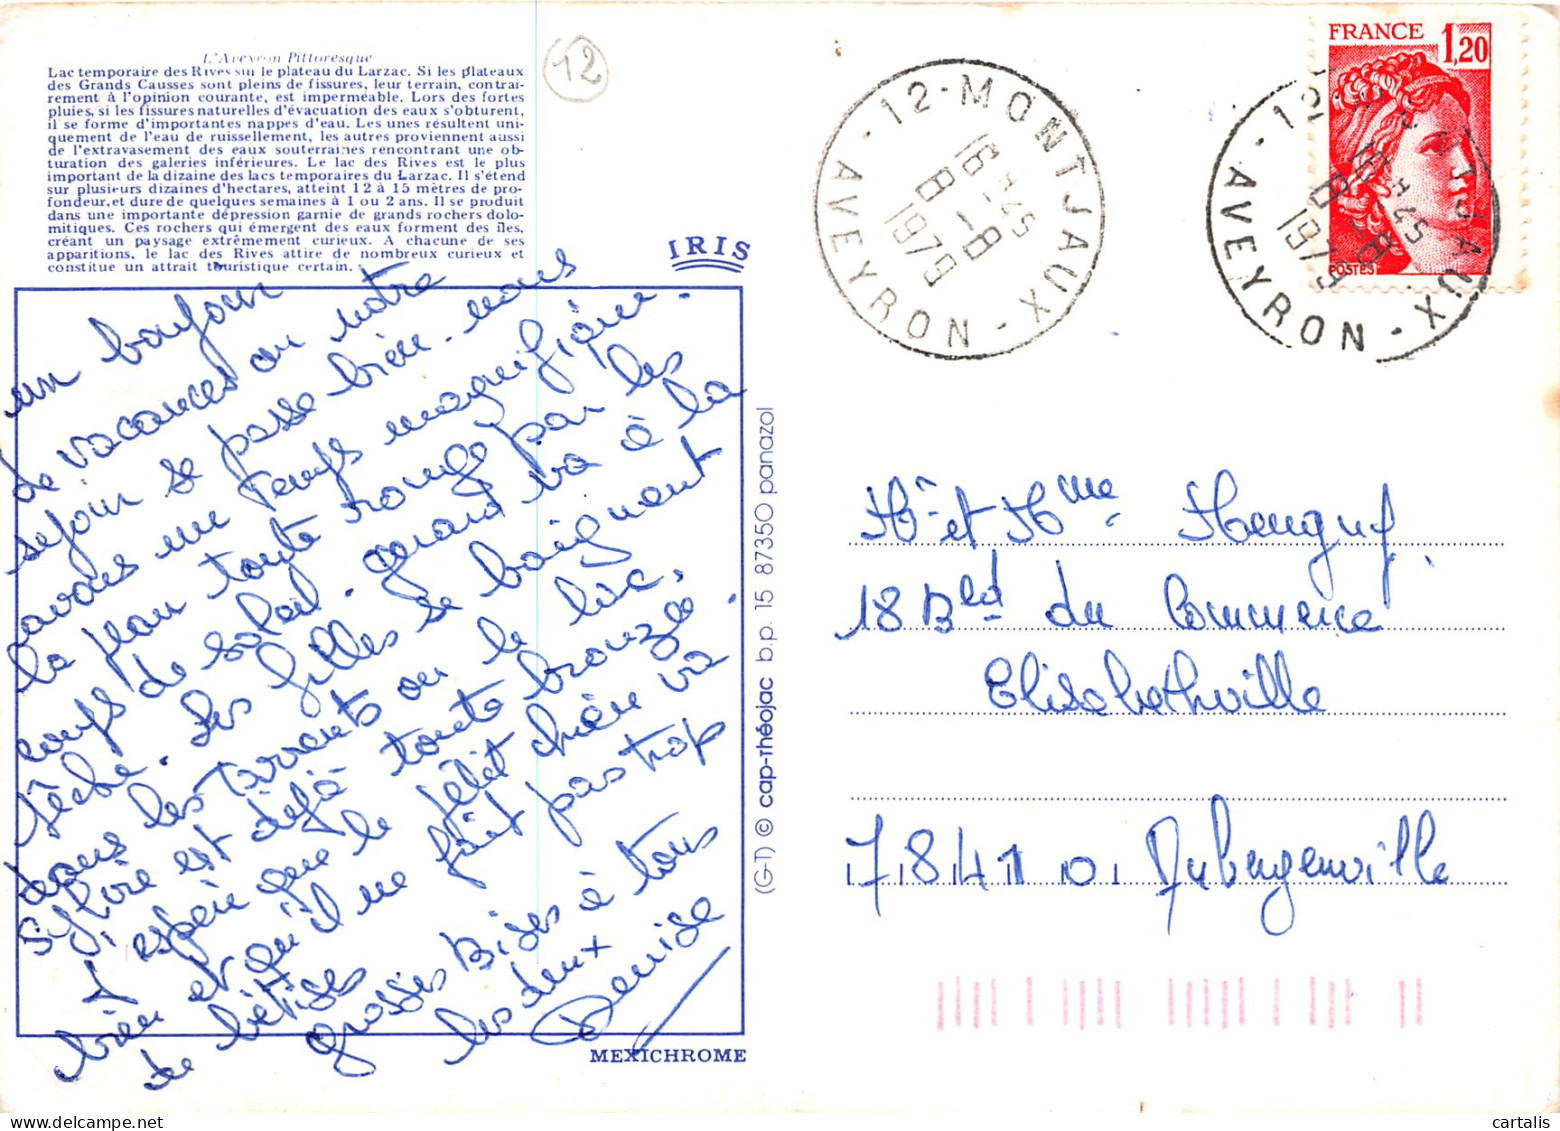 L'Aveyron Pittoresque
Lac temporaire des Rives sur le plateau du Larzac. Si les plateaux
des Grands Causses sont pleins de fissures, leur terrain, contrai-
rement à l'opinion courante, est imperméable. Lors des fortes
pluies, si les fissures naturelles d'évacuation des eaux s'obturent,
il se forme d'importantes nappes d'eau. Les unes résultent uni-
quement de l'eau de ruissellement, les autres proviennent aussi
de l'extravasement des eaux souterraines rencontrant une ob-
turation des galeries inférieures. Le lac des Rives est le plus
important de la dizaine des lacs temporaires du Larzac. Il s'étend
sur plusieurs dizaines d'hectares, atteint 12 à 15 mètres de pro-
fondeur, et dure de quelques semaines à 1 ou 2 ans. Il se produit
dans une importante dépression garnie de grands rochers dolo-
mitiques. Ces rochers qui émergent des eaux forment des îles,
créant un paysage extrêmement curieux. A chacune de ses
apparitions, le lac des Rives attire de nombreux curieux et
constitue un attrait touristique certain.
12
IRIS
un bonjour
de vacances ou notre
sejour se passe bien. nous
avons un temps magnifique.
la peau toute rouge par les
coups de soleil. gerard va à la
pêche. les filles se baignent
dans les torrents ou le lac.
Sylvie est déjà toute bronzée.
J espère que le petit chien va
bien et qu'il ne fait pas trop
de bêtises
grosses Bises à tous
les deux
Denise
MEXICHROME
(G-T) © cap-théojac b.p. 15 87350 panazol
12 - MONTJAUX - AVEYRON -
16 H 45
8 - 8
1979
FRANCE 1,20
POSTES
12 - MONTJAUX - AVEYRON -
16 H 45
8 - 8
1979
Mr et Mme
18 Bld du Commerce
Elisabethville
78410 Aubergenville